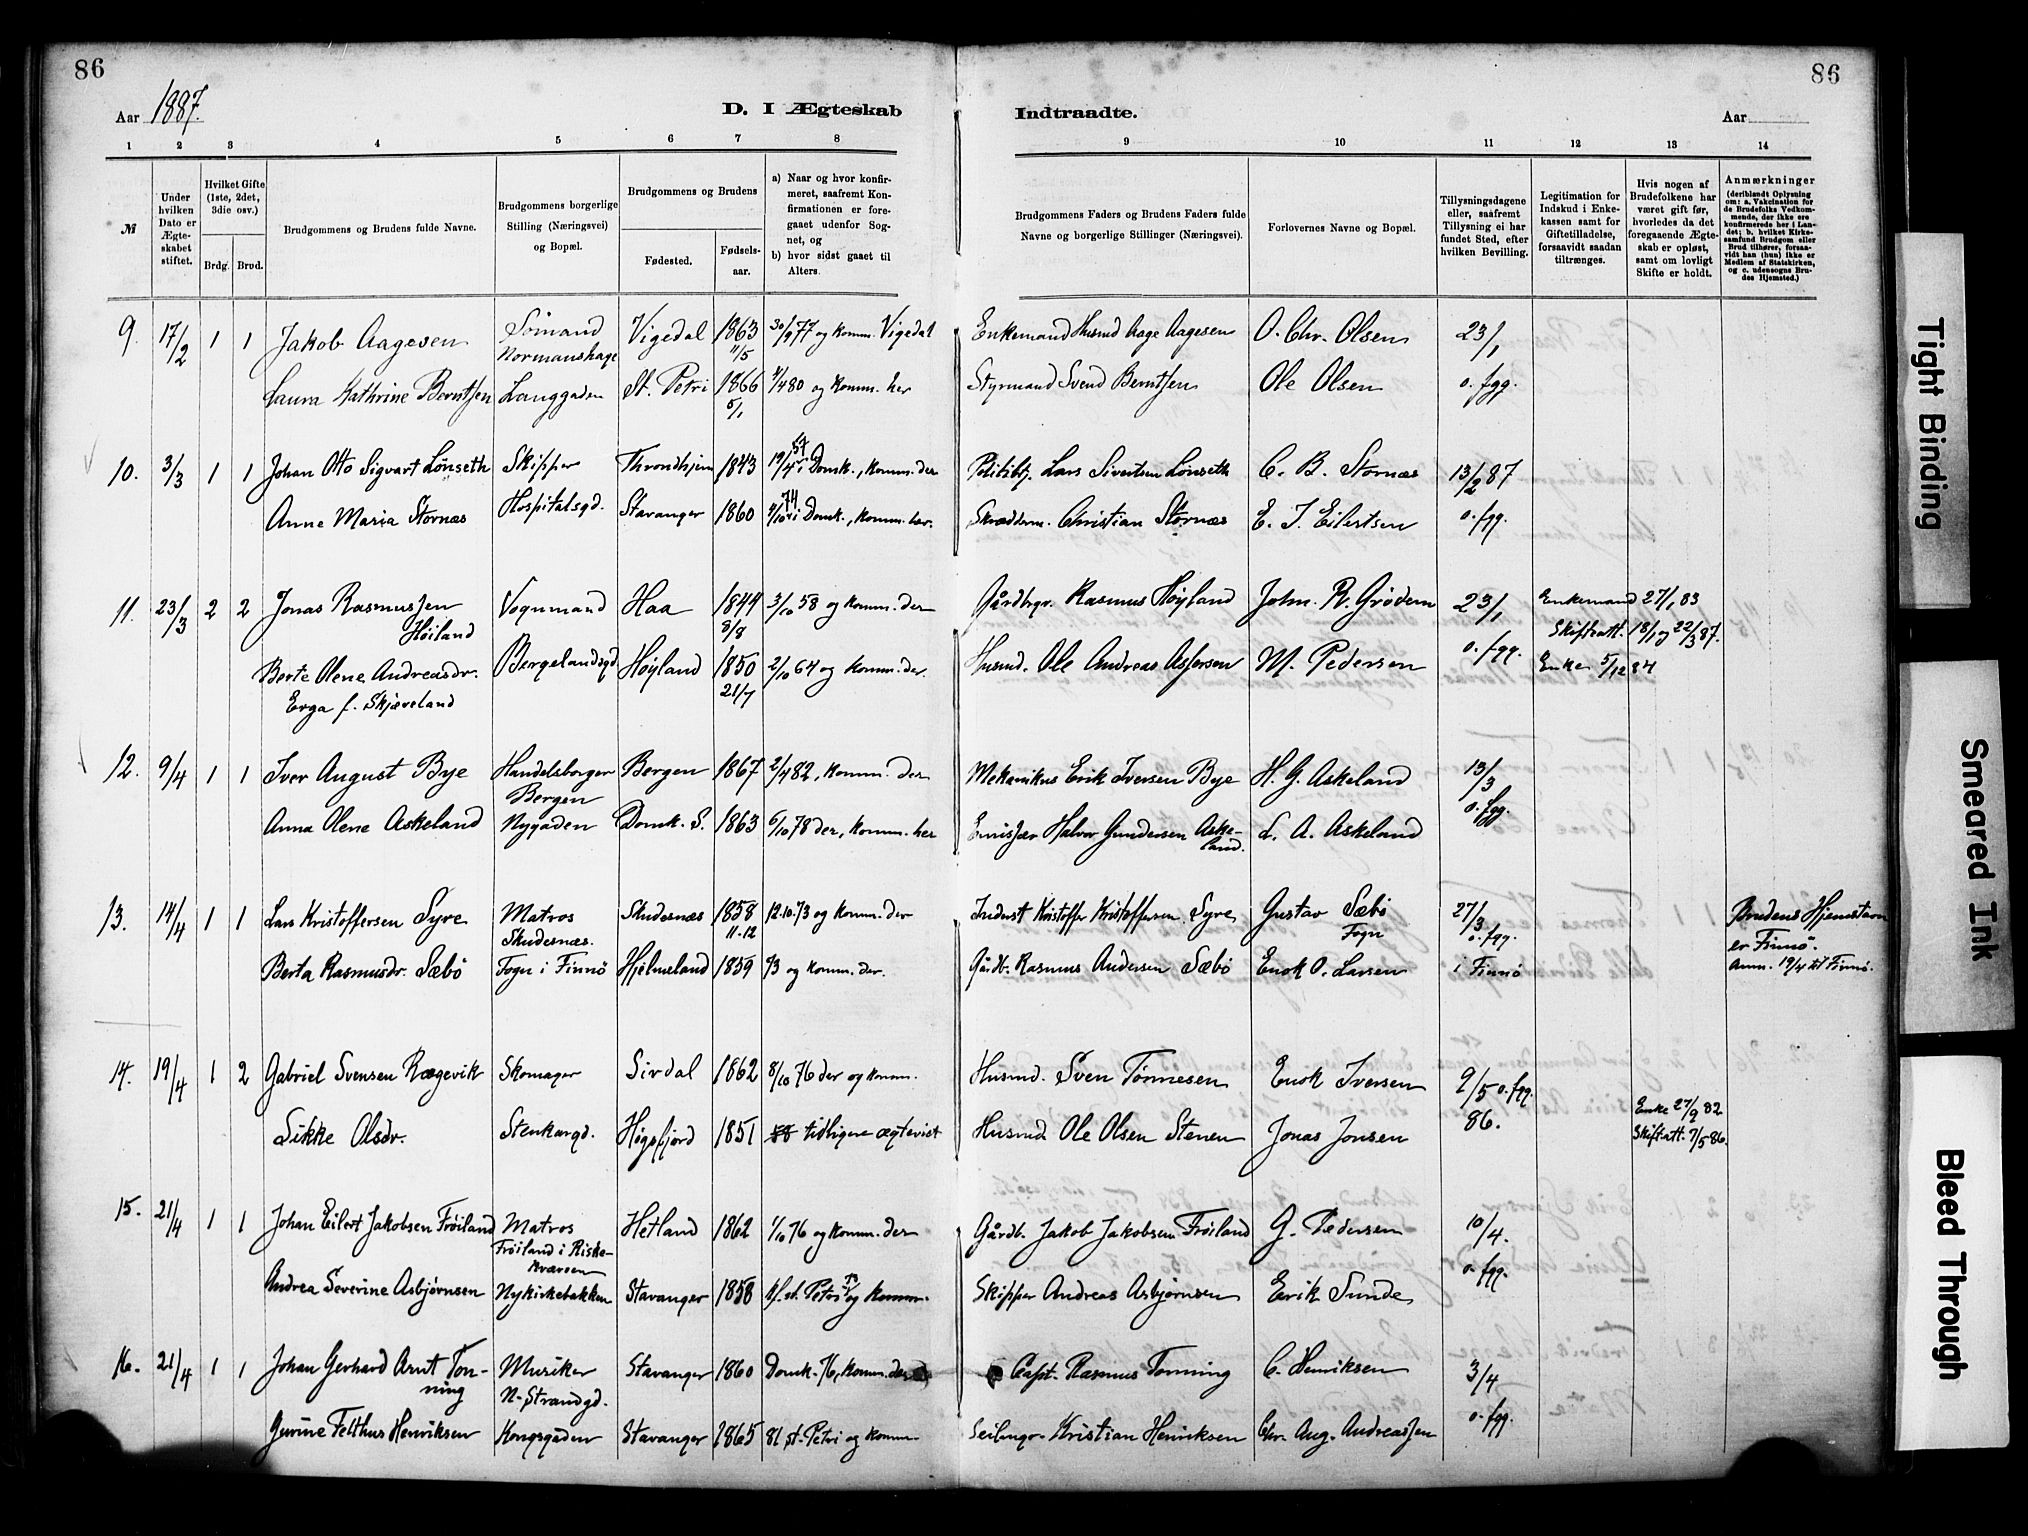 86
86
Aar 1887.
D. I Ægteskab
Indtraadte.
Aar
1 2 3 4 5 6 7 8 9 10 11 12 13 14
№
Under hvilken Dato er Ægteskabet stiftet.
Hvilket Gifte (1ste, 2det, 3die osv.)
Brdg. Brud.
Brudgommens og Brudens fulde Navne.
Brudgommens borgerlige Stilling (Næringsvei) og Bopæl.
Brudgommens og Brudens
Fødested.
Fødselsaar.
a) Naar og hvor konfirmeret, saafremt Konfirmationen er foregaaet udenfor Sognet, og
b) hvor sidst gaaet til Alters.
Brudgommens Faders og Brudens Faders fulde Navne og borgerlige Stillinger (Næringsvei).
Forlovernes Navne og Bopæl.
Tillysningsdagene eller, saafremt Tillysning ei har fundet Sted, efter hvilken Bevilling.
Legitimation for Indskud i Enkekassen samt for Giftetilladelse, forsaavidt saadan tiltrænges.
Hvis nogen af Brudefolkene har været gift før, hvorledes da det foregaaende Ægteskab er opløst, samt om lovligt Skifte er holdt.
Anmærkninger
(deriblandt Oplysning om: a. Vakcination for de Brudefolks Vedkommende, der ikke ere konfirmerede her i Landet; b. hvilket Kirkesamfund Brudgom eller Brud tilhører, forsaavidt han (hun) ikke er Medlem af Statskirken, og c. udensogns Brudes Hjemsted.)
9. 17/2 1 1 Jakob Aagesen Sömand Normanshage Vigedal 1863 11/5 30/9 77 og komm. Vigedal Enkemand Husmd Aage Aagesen O. Chr. Olsen 23/1
Laura Kathrine Berntsen Langgaden St. Petri 1866 5/1 4/4 80 og komm. her Styrmand Svend Berntsen Ole Olsen o. fgg.
10. 3/3 1 1 Johan Otto Sigvart Lönseth Skipper Throndhjem 1843 19/4 57 i Domk., komm. der Lars Sivertsen Lönseth C. B. Stornæs 13/2 87
Anne Maria Stornæs Hospitalsgd. Stavanger 1860 4/10 74 i Domk., komm. her. Skrædderm. Christian Stornæs E. J. Eilertsen o. fgg.
11. 23/3 2 2 Jonas Rasmussen Höiland Vognmand Haa 1844 8/8 3/10 58 og komm. der Gårdbrgr. Rasmus Höyland John. R. Grödem 23/1 Enkemand 27/1 83
Skifteatt. 18/1 og 22/3 87.
Berte Olene Andreasdr. Erga f. Skjæveland Bergelandsgd Höyland 1850 21/7 2/10 64 og komm. der. Husmd. Ole Andreas Asserson M. Pedersen o. fgg. Enke 5/12 84
12. 9/4 1 1 Iver August Bye Handelsborger Bergen Bergen 1867 2/4 82, komm. der Mekanikus Erik Iversen Bye H. G. Askeland 13/3
Anna Olene Askeland Nygaden Domk. S. 1863 6/10 78 der, komm. her Halvor Gundersen Askeland. L. A. Askeland o. fgg.
13. 14/4 1 1 Lars Kristoffersen Syre Matros Skudesnæs. Skudesnæs 1858 11-12 12-10-73 og komm. der Inderst Kristoffer Kristoffersen Syre Gustav Sæbö Fogn 27/3 o. fgg. Brudens Hjemstavn er Finnö.
Berta Rasmusdr. Sæbö Fogn i Finnö Hjelmeland 1859 73 og komm. der. Gårdb. Rasmus Andersen Sæbö Enok O. Larsen i Finnö Anm. 19/4 til Finnö.
14. 19/4 1 2 Gabriel Svensen Rægevik Skomager Sirdal 1862 8/10 76 der og komm. Husmd. Sven Tönnesen Enok Iversen 9/5 o. fgg. 86.
Sikke Olsdr. Stenkargd. Högsfjord 1851 tidligere ægteviet Husmd. Ole Olsen Stenen Jonas Jonsen Enke 27/9 82
Skifteatt. 7/5 86.
15. 21/4 1 1 Johan Eilert Jakobsen Fröiland Matros Fröiland i Riskekværsen Hetland 1862 1/10 76 og komm. der Gårdb. Jakob Jakobsen Fröiland G. Pedersen 10/4.
Andrea Severine Asbjörnsen Nykirkebakken Stavanger 1858 kf. st. Petri 73 og komm. Skipper Andreas Asbjörnsen Erik Sunde o. fgg.
16. 21/4 1 1 Johan Gerhard Arnt Tonning Musiker N-Strandgd. Stavanger 1860 Domk. 76, komm. der Capt. Rasmus Tonning C. Henriksen 3/4
Gurine Felthus Henriksen Kongsgaden Stavanger 1865 81 st. Petri og komm. Kristian Henriksen Chr. Aug. Andreassen o. fgg.
Tight Binding
Smeared Ink
Bleed Through